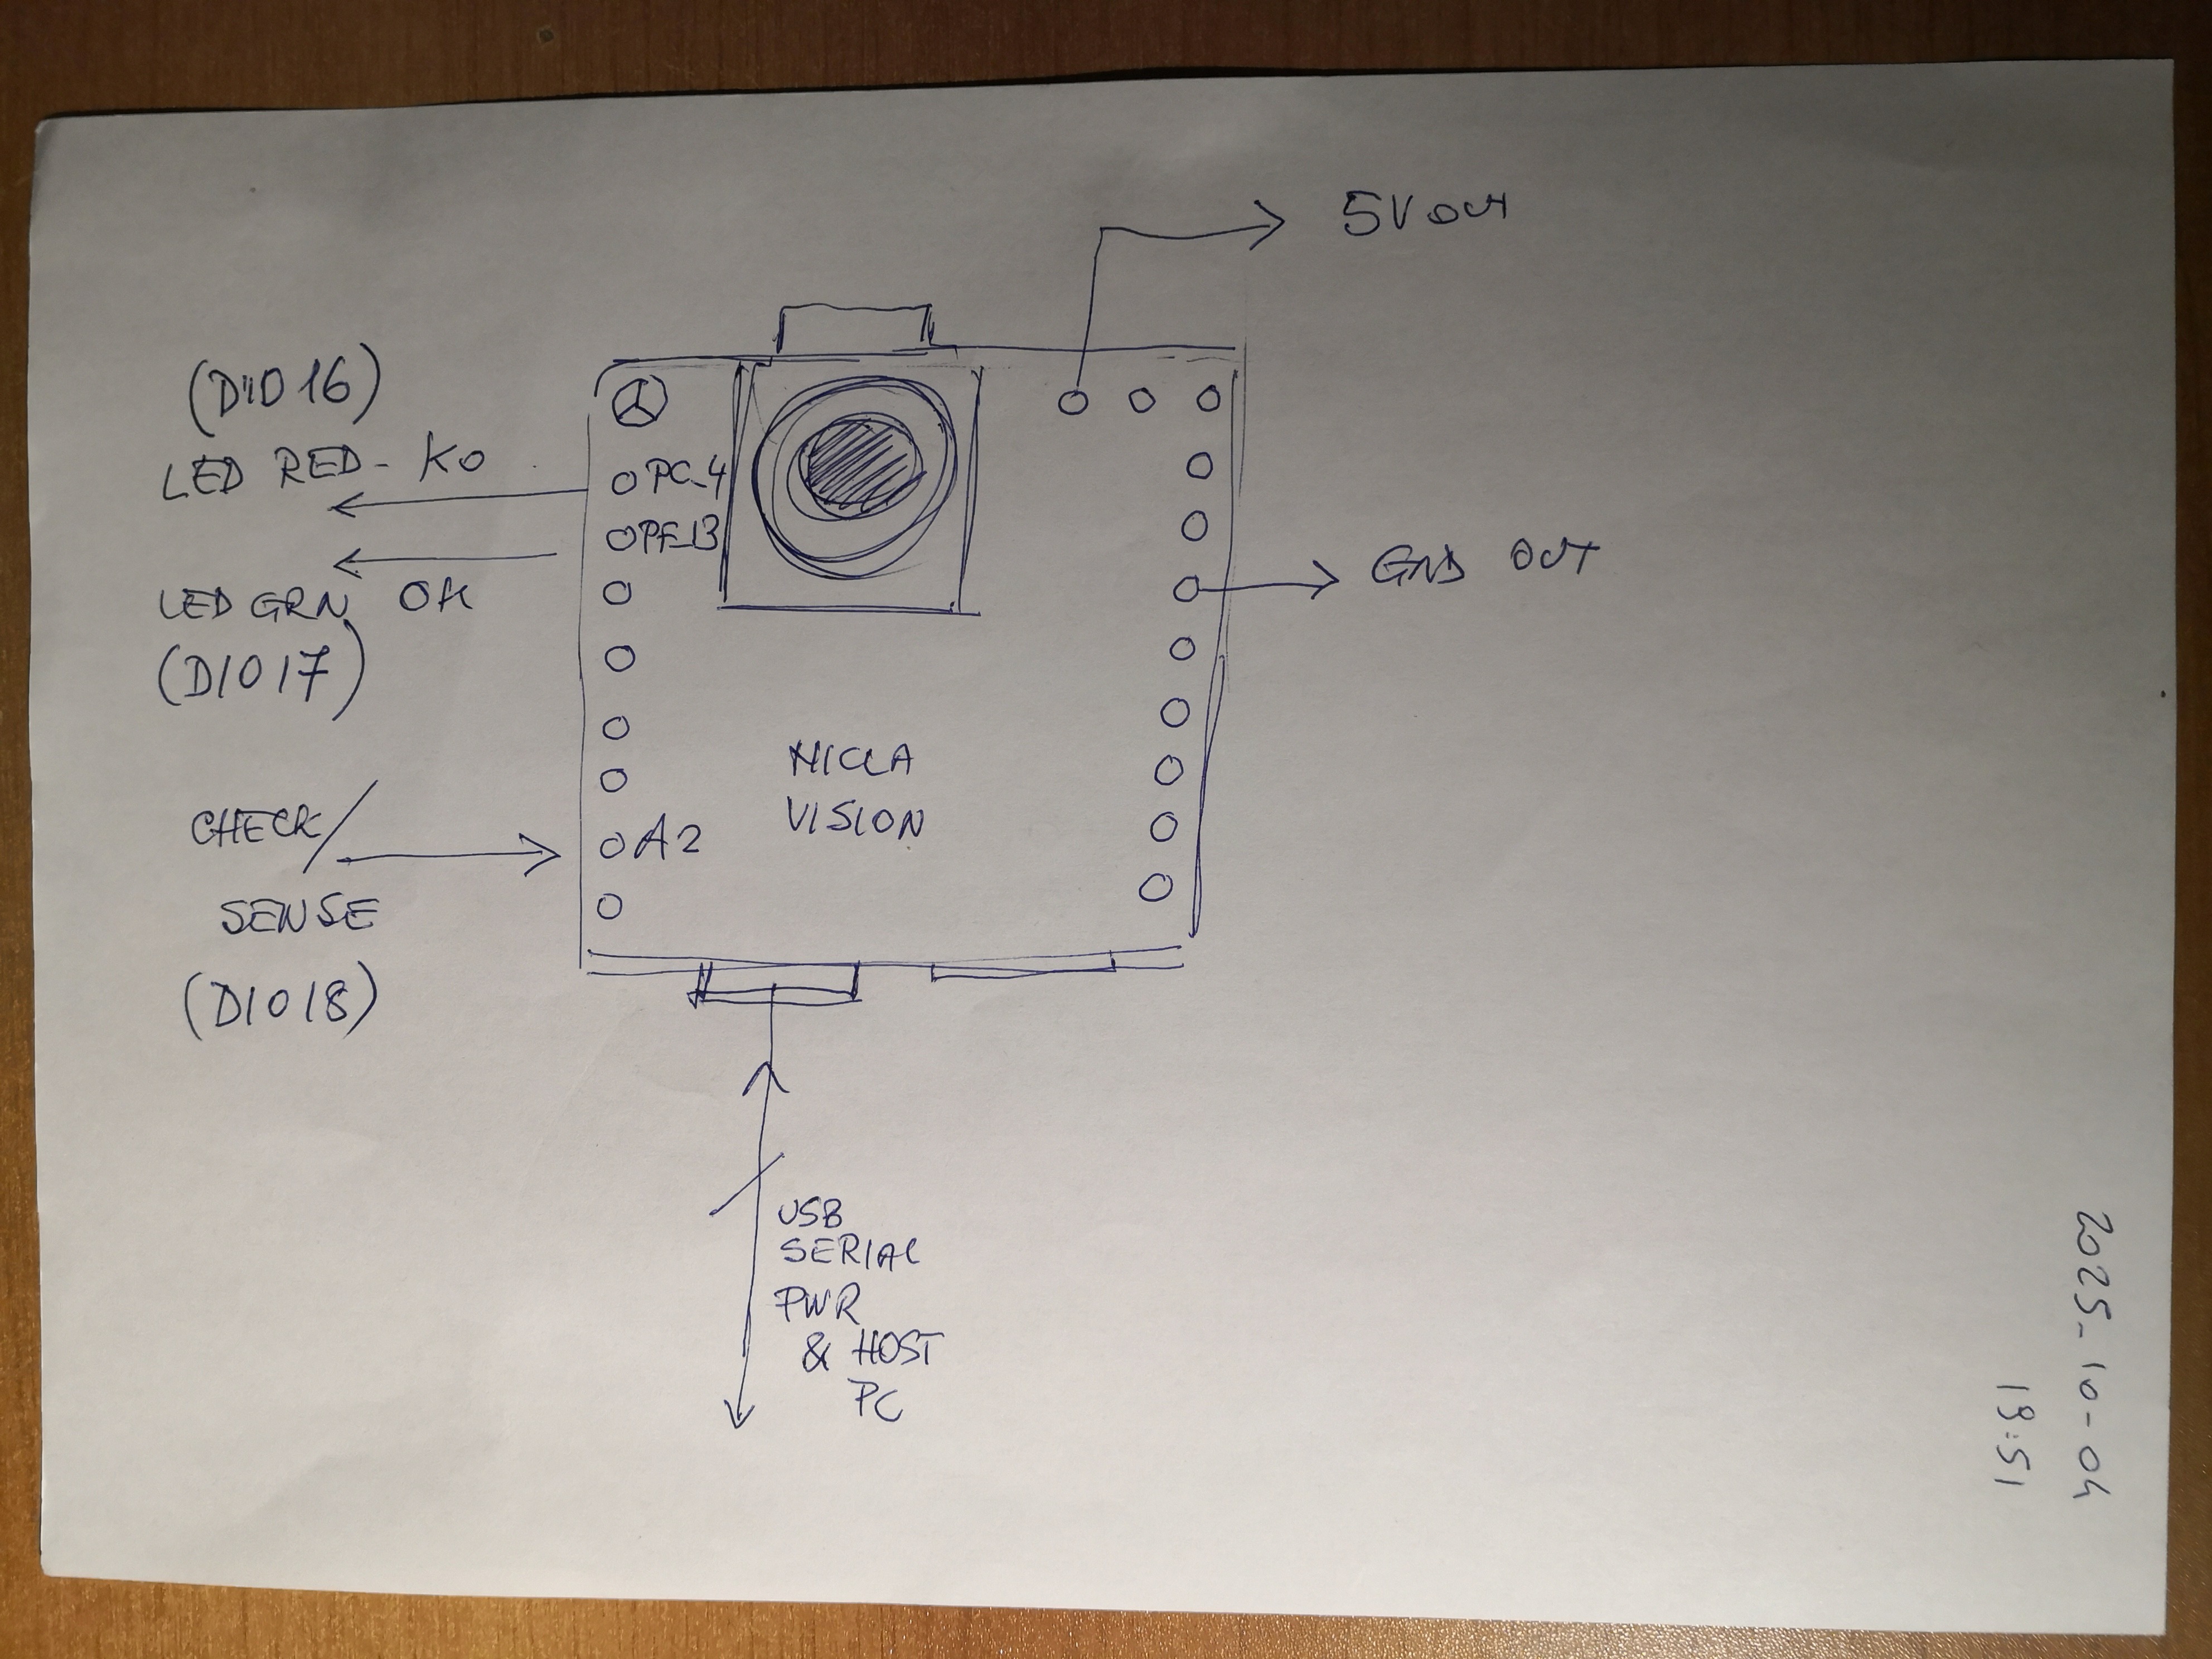 5V OUT
(DIO 16)
LED RED - KO
PC_4
PF_13
GND OUT
LED GRN OK
(DIO 17)
NICLA
VISION
CHECK/
A2
SENSE
(DIO 18)
USB
SERIAL
PWR
& HOST
PC
2025-10-04
19:51